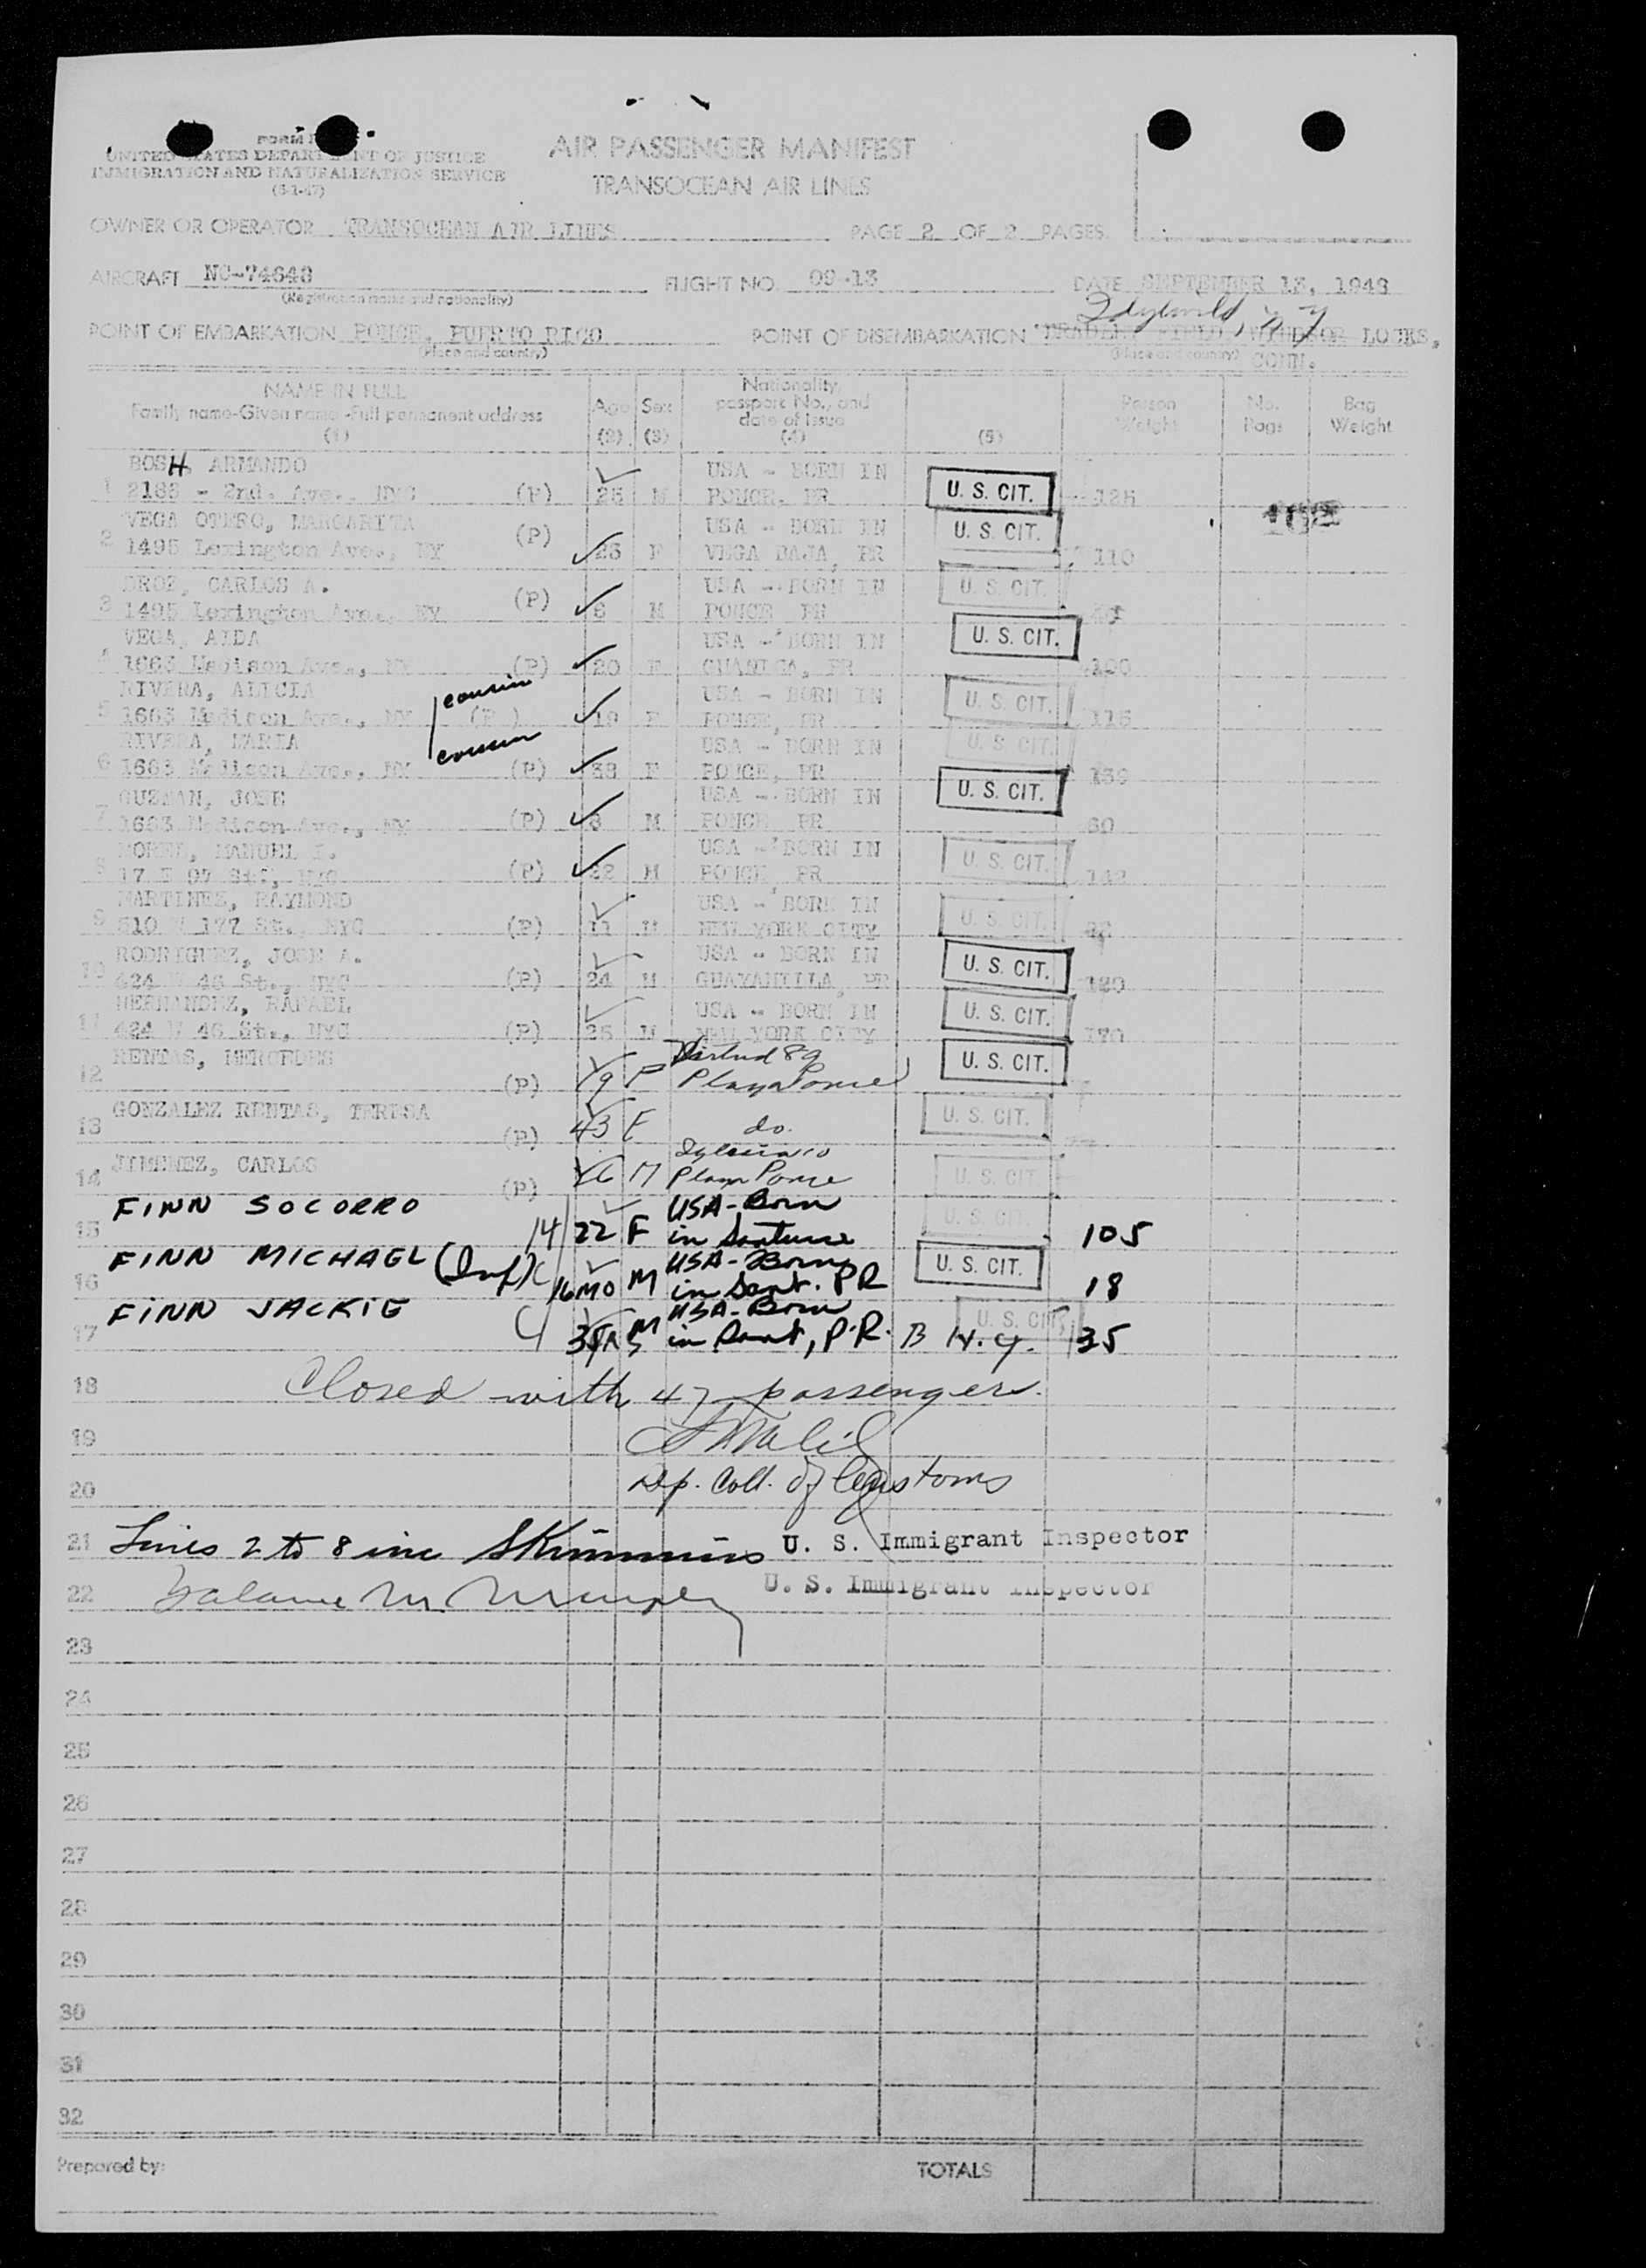 FORM I
UNITED STATES DEPARTMENT OF JUSTICE
IMMIGRATION AND NATURALIZATION SERVICE
(5-1-47)
AIR PASSENGER MANIFEST
TRANSOCEAN AIR LINES
OWNER OR OPERATOR TRANSOCEAN AIR LINES PAGE 2 OF 2 PAGES
AIRCRAFT NC-74648 FLIGHT NO. 09-13 DATE SEPTEMBER 13, 1948
(Registration marks and nationality)
Idylwild, NY
POINT OF EMBARKATION PONCE, PUERTO RICO POINT OF DISEMBARKATION BRADLEY FIELD, WINDSOR LOCKS,
(Place and country) (Place and country) CONN.
NAME IN FULL
Family name-Given name-Full permanent address
(1)
Age (2)
Sex (3)
Nationality, passport No., and date of issue
(4)
(5)
Person Weight
No. Bags
Bag Weight
BOSH, ARMANDO USA - BORN IN
1 2183 - 2nd. Ave., NYC (P) 25 M PONCE, PR U. S. CIT. 125 162
VEGA OTERO, MARGARITA USA - BORN IN
2 1495 Lexington Ave., NY (P) 26 F VEGA BAJA, PR U. S. CIT. 110
CARLOS A. USA - BORN IN
3 1495 Lexington Ave., NY (P) 6 M PONCE PR U. S. CIT.
VEGA, AIDA USA - BORN IN
4 1663 Madison Ave., NY (P) 20 F GUANICA, PR U. S. CIT. 100
RIVERA, ALICIA cousin USA - BORN IN
5 1663 Madison Ave., NY (P) 19 F PONCE, PR U. S. CIT. 115
RIVERA, MARIA cousin USA - BORN IN
6 1663 Madison Ave., NY (P) 38 F PONCE, PR U. S. CIT. 130
GUZMAN, JOSE USA - BORN IN
7 1663 Madison Ave., NY (P) 8 M PONCE PR U. S. CIT. 60
MANUEL USA - BORN IN
8 17 E 97 St., NYC (P) 32 M PONCE, PR U. S. CIT. 142
MARTINEZ, RAYMOND USA - BORN IN
9 510 W 177 St., NYC (P) 11 M NEW YORK CITY U. S. CIT.
RODRIGUEZ, JOSE A. USA - BORN IN
10 424 W 46 St., NYC (P) 24 M GUAYANILLA, PR U. S. CIT. 120
HERNANDEZ, RAFAEL USA - BORN IN
11 424 W 46 St., NYC (P) 25 M NEW YORK CITY U. S. CIT. 170
RENTAS, MERCEDES Virtud 89
12 (P) 19 F Playa Ponce U. S. CIT.
GONZALEZ RENTAS, TERESA
13 (P) 43 F do. U. S. CIT.
JIMENEZ, CARLOS
14 (P) M Playa Ponce U. S. CIT.
FINN SOCORRO USA - Born
15 14 22 F in Santurce U. S. CIT. 105
FINN MICHAEL (Inf) USA - Born
16 16 MO M in Sant. PR U. S. CIT. 18
FINN JACKIE USA - Born
17 3 YRS M in Sant, P.R. B N.Y. U. S. CIT. 35
18 Closed with 47 passengers.
19
20 Dep. Coll. of Customs
21 Lines 2 to 8 inc SKimmins U. S. Immigrant Inspector
22 Balance M. Murphy U. S. Immigrant Inspector
23
24
25
26
27
28
29
30
31
32
Prepared by: TOTALS